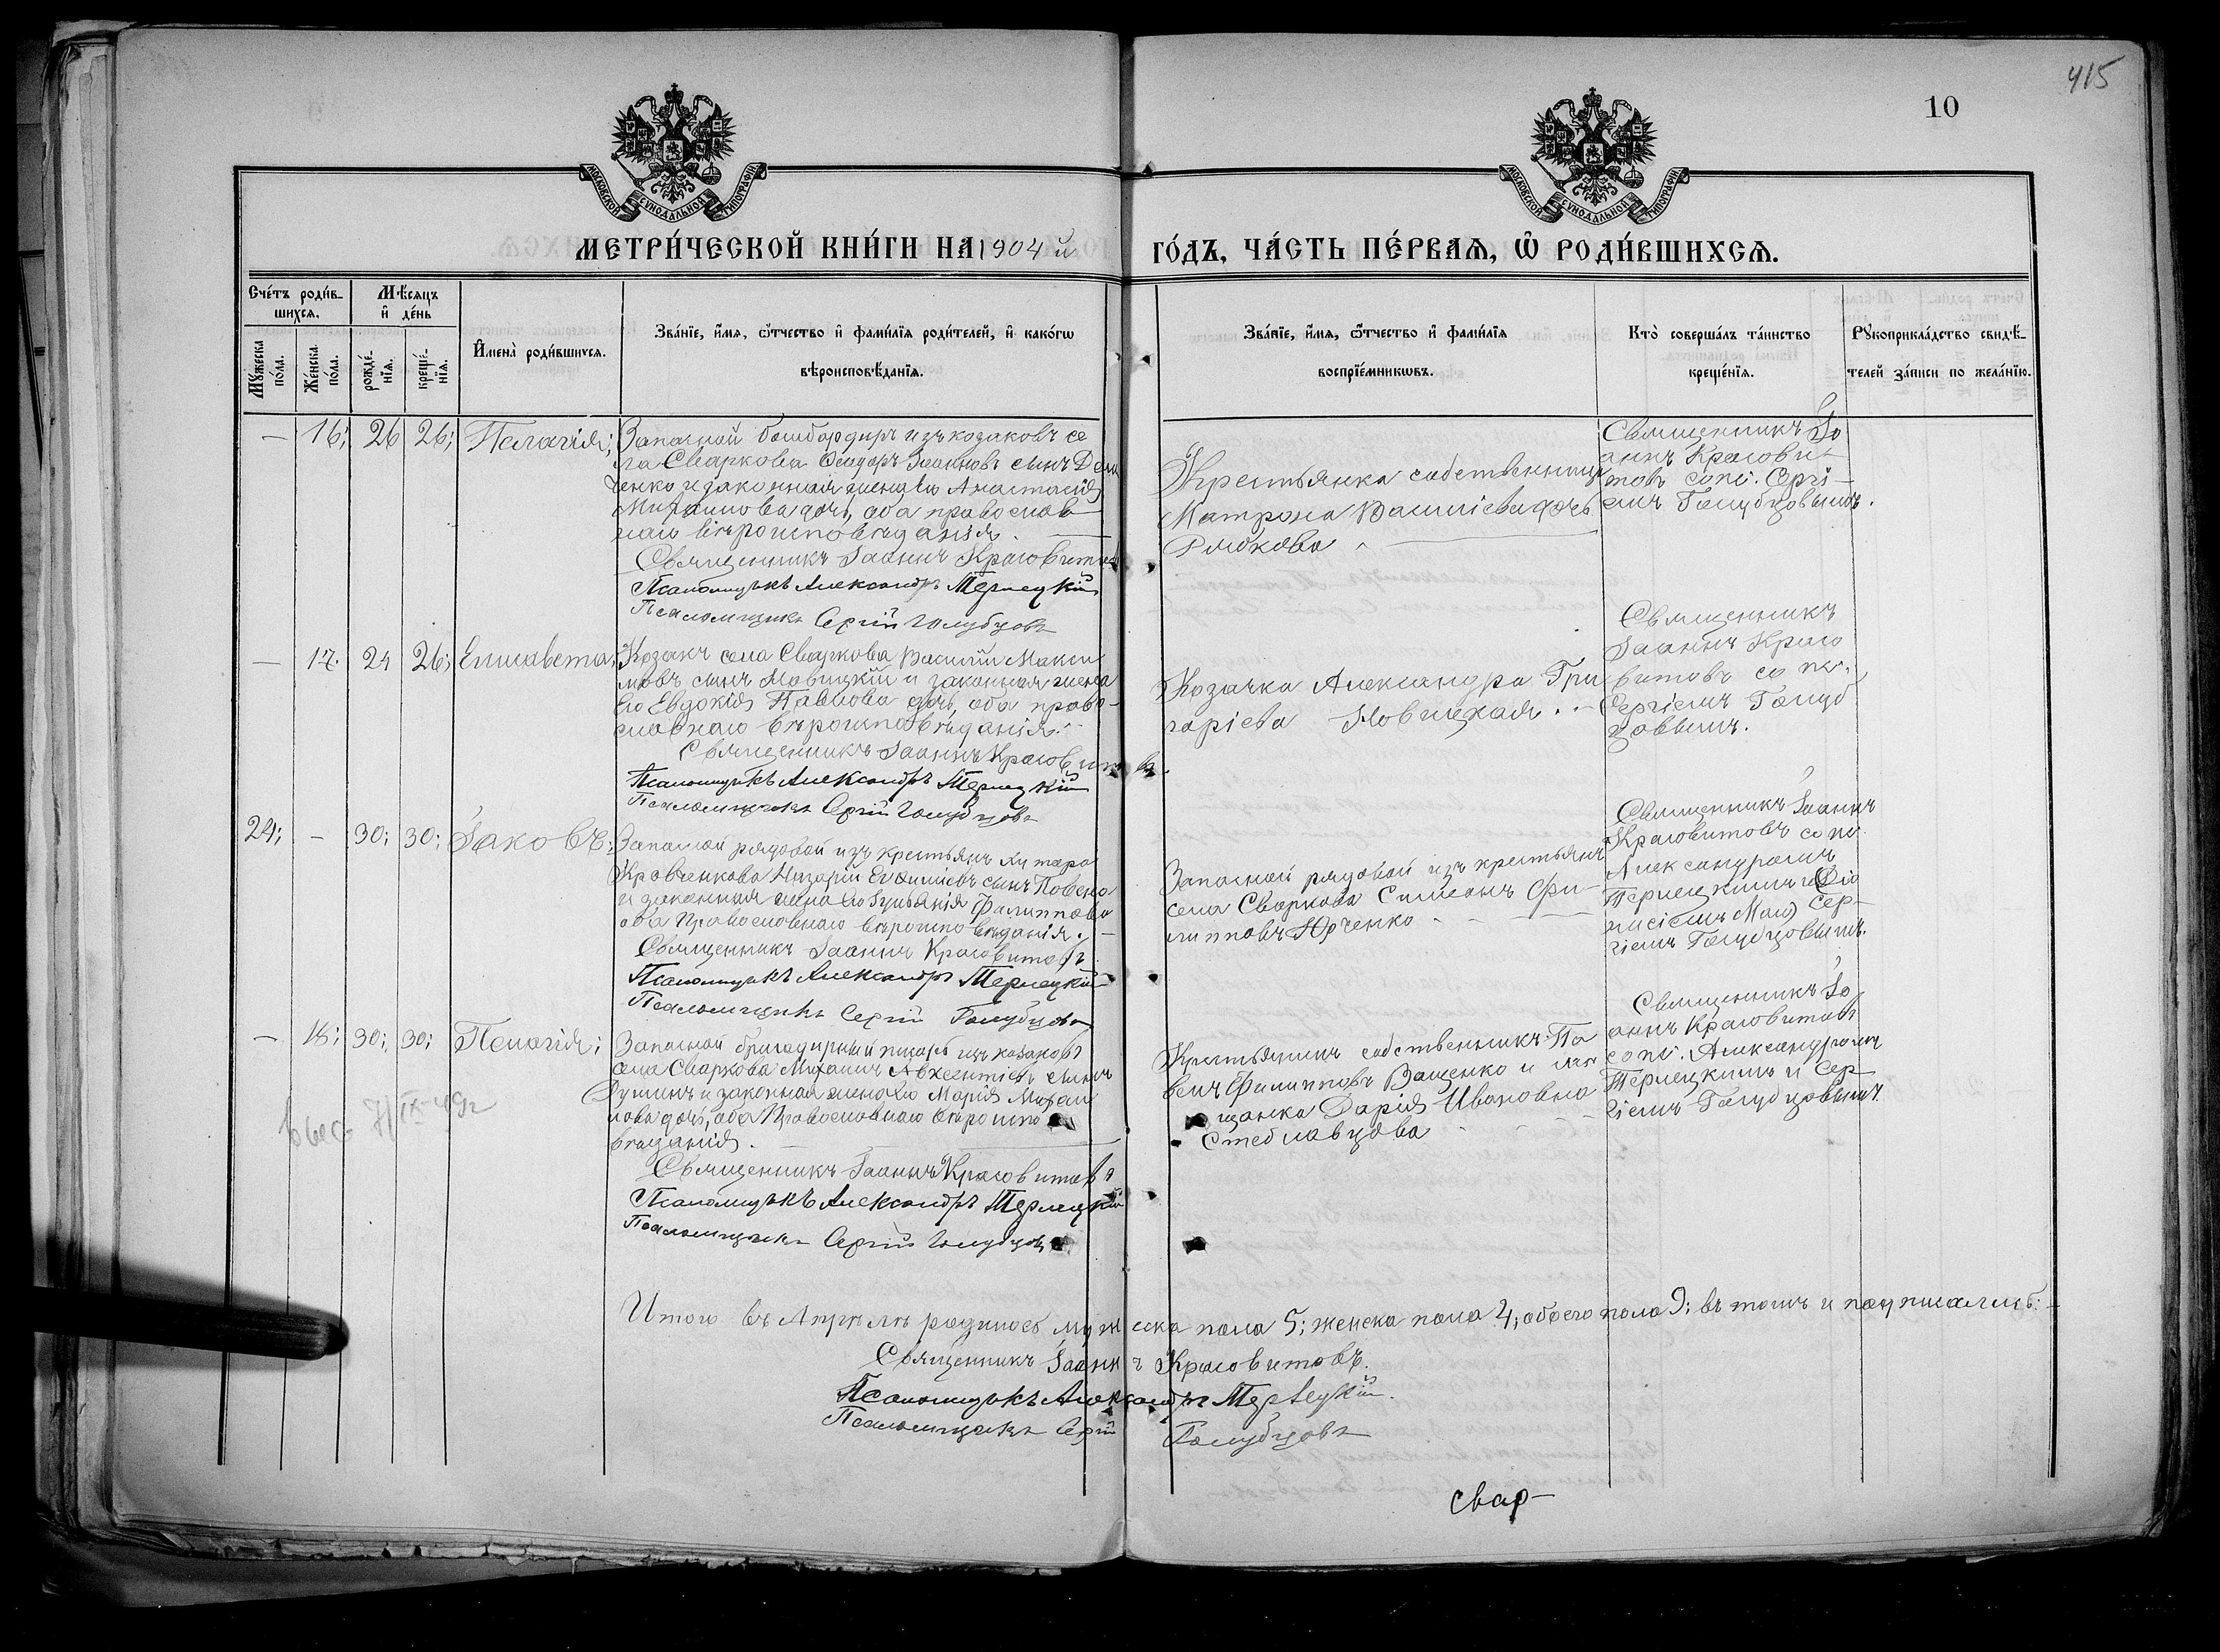 415
10
МОСКОВСКОЙ СУНОДАЛЬНОЙ ТИПОГРАФІИ
МОСКОВСКОЙ СУНОДАЛЬНОЙ ТИПОГРАФІИ
МЕТРИ́ЧЕСКОЙ КНИ́ГИ НА 1904 й
ГО́ДЪ, ЧА́СТЬ ПЕ́РВАѦ, Ѡ РОДИ́ВШИХСѦ.
Сче́тъ роди́в-
шихсѧ.
Мѣ́сѧцъ
и҆ де́нь
Мꙋ́жеска по́ла.
Же́нска по́ла.
рожде́-нїѧ.
креще́-нїѧ.
И҆мена̀ роди́вшихсѧ.
Зва́нїе, и҆́мѧ, ѻ҆́тчество и҆ фами́лїѧ роди́телей, и҆ како́гѡ
вѣроисповѣ́данїѧ.
Зва́нїе, и҆́мѧ, ѻ҆́тчество и҆ фами́лїѧ
воспрїе́мникѡвъ.
Кто̀ соверша́лъ та́инство
креще́нїѧ.
Рꙋкоприкла́дство свидѣ́-
телей за́писи по жела́нїю.
— 16; 26 26; Пелагія;
Запасной бомбардиръ изъ козаковъ се
ла Сваркова Іоанновъ сынъ
ченко и законная жена его Анастасія
дочь, оба православ
наго вѣроисповѣданія.
Священникъ Іоаннъ Красовитовъ
Псаломщикъ Александръ Терлецкій
Псаломщикъ Сергій Голубцовъ
Крестьянка собственница
Матрона Василіева дочь
Священникъ Іо
аннъ Красови
товъ со пс. Сергі-
емъ Голубцовымъ.
— 17. 24 26; Елисавета;
Козакъ села Сваркова Василій Макси
мовъ сынъ и законная жена
его Евдокія Павлова дочь, оба право-
славнаго вѣроисповѣданія.
Священникъ Іоаннъ Красовитовъ.
Псаломщикъ Александръ Терлецкій
Псаломщикъ Сергій Голубцовъ
Козачка Александра Гри
горіева Новицкая.
Священникъ
Іоаннъ Красо
витовъ со пс.
Сергіемъ Голуб
цовымъ.
24; — 30; 30; Іаковъ;
Запасной рядовой изъ крестьянъ хутора
Кравченкова Назарій сынъ
и законная жена его Іуліанія Филиппова
оба Православнаго вѣроисповѣданія.
Священникъ Іоаннъ Красовитовъ.
Псаломщикъ Александръ Терлецкій
Псаломщикъ Сергій Голубцовъ
Запасной рядовой изъ крестьянъ
села Сваркова Симеонъ Фи-
липповъ Юрченко
Священникъ Іоаннъ
Красовитовъ со пс.
Александромъ
Терлецкимъ и
Сер-
гіемъ Голубцовымъ.
— 18; 30; 30; Пелагія;
Запасной бригадирный писарь изъ казаковъ
села Сваркова Михаилъ Авксентіевъ сынъ
и законная жена его Марія Михаи
лова дочь, оба Православнаго вѣроиспо
вѣданія.
Священникъ Іоаннъ Красовитовъ
Псаломщикъ Александръ Терлецкій
Псаломщикъ Сергій Голубцовъ
Крестьянинъ собственникъ Па
велъ Филипповъ Ващенко и мѣ
щанка Дарія Ивановна
Стеблавцова
Священникъ Іо
аннъ Красовитовъ
со пс. Александромъ
Терлецкимъ и Сер
гіемъ Голубцовымъ.
7/IX-49г
Итого въ Апрѣлѣ родилось мужеска пола 5; женска пола 4; обоего пола 9; въ томъ и подписались:
Священникъ Іоаннъ Красовитовъ.
Псаломщикъ Александръ Терлецкій.
Псаломщикъ Сергій Голубцовъ
Свар-